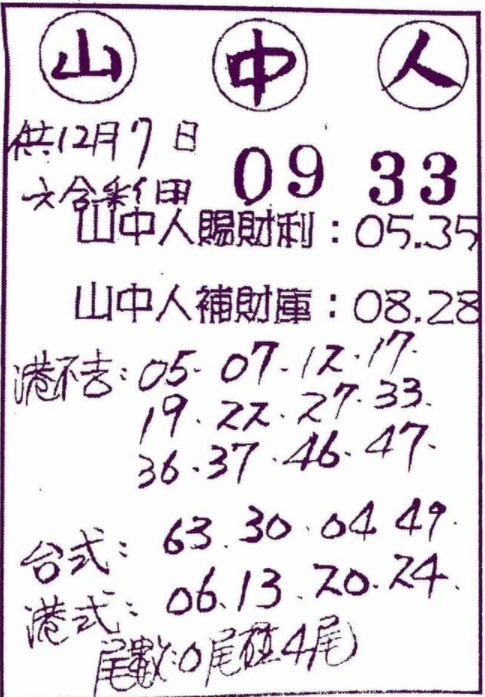 山 中 人
供12月7日
六合彩用 09 33
山中人賜財利：05.35
山中人補財庫：08.28
港不吉：05.07.12.17.
19.22.27.33.
36.37.46.47.
台式：63.30.04 49.
港式：06.13.20.24.
尾數：0尾碰4尾